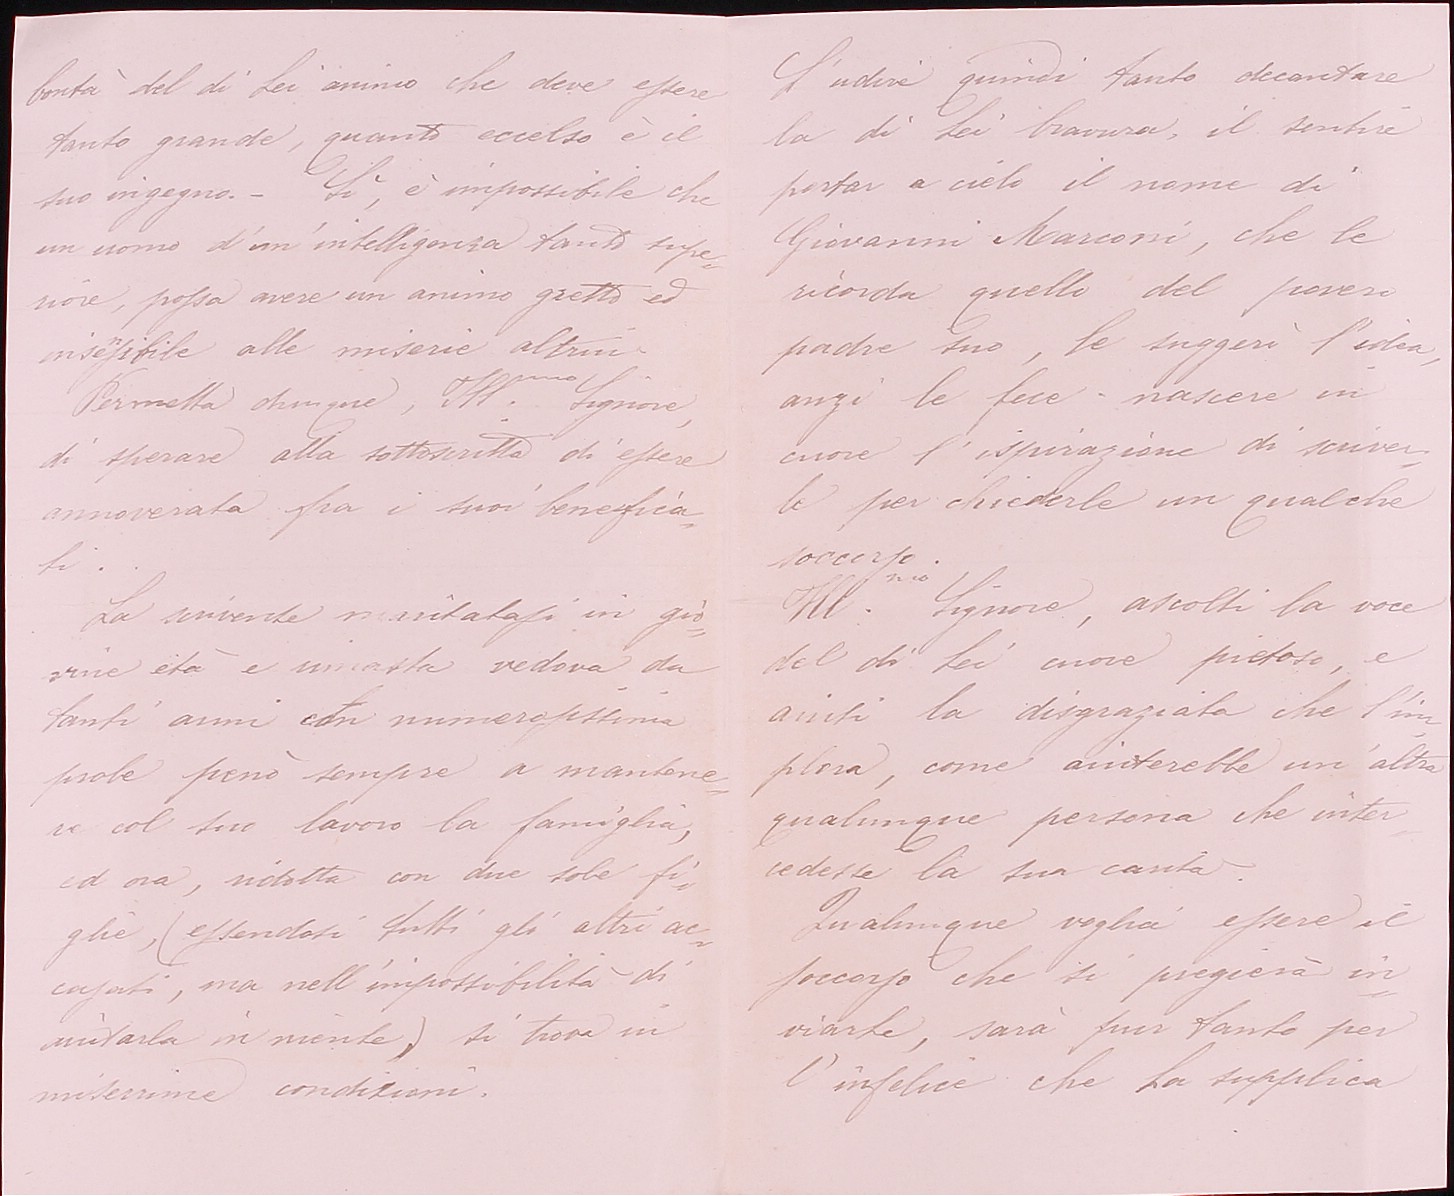 bontà del di Lei animo che deve essere
tanto grande, quanto eccelso è il
suo ingegno. - Sì, è impossibile che
un uomo d'un'intelligenza tanto supe=
riore, possa avere un animo gretto ed
insensibile alle miserie altrui.
Permetta dunque, Ill.mo Signore,
di sperare alla sottoscritta di essere
annoverata fra i suoi beneficia=
ti.
La scrivente maritatasi in gio=
vine età e rimasta vedova da
tanti anni con numerosissima
prole penò sempre a mantene=
re col suo lavoro la famiglia,
ed ora, ridotta con due sole fi=
glie, (essendosi tutti gli altri ac=
casati, ma nell'impossibilità di
aiutarla in niente) si trova in
miserrime condizioni.
L'udire quindi tanto decantare
la di Lei bravura, il sentire
portar a cielo il nome di
Giovanni Marconi, che le
ricorda quello del povero
padre suo, le suggerì l'idea,
anzi le fece nascere in
cuore l'ispirazione di scriver=
le per chiederle un qualche
soccorso.
Ill.mo Signore, ascolti la voce
del di Lei cuore pietoso, e
aiuti la disgraziata che l'im=
plora, come aiuterebbe un'altra
qualunque persona che inter=
cedesse la sua carità.
Qualunque voglia essere il
soccorso che si pregierà in=
viarle, sarà pur tanto per
l'infelice che La supplica